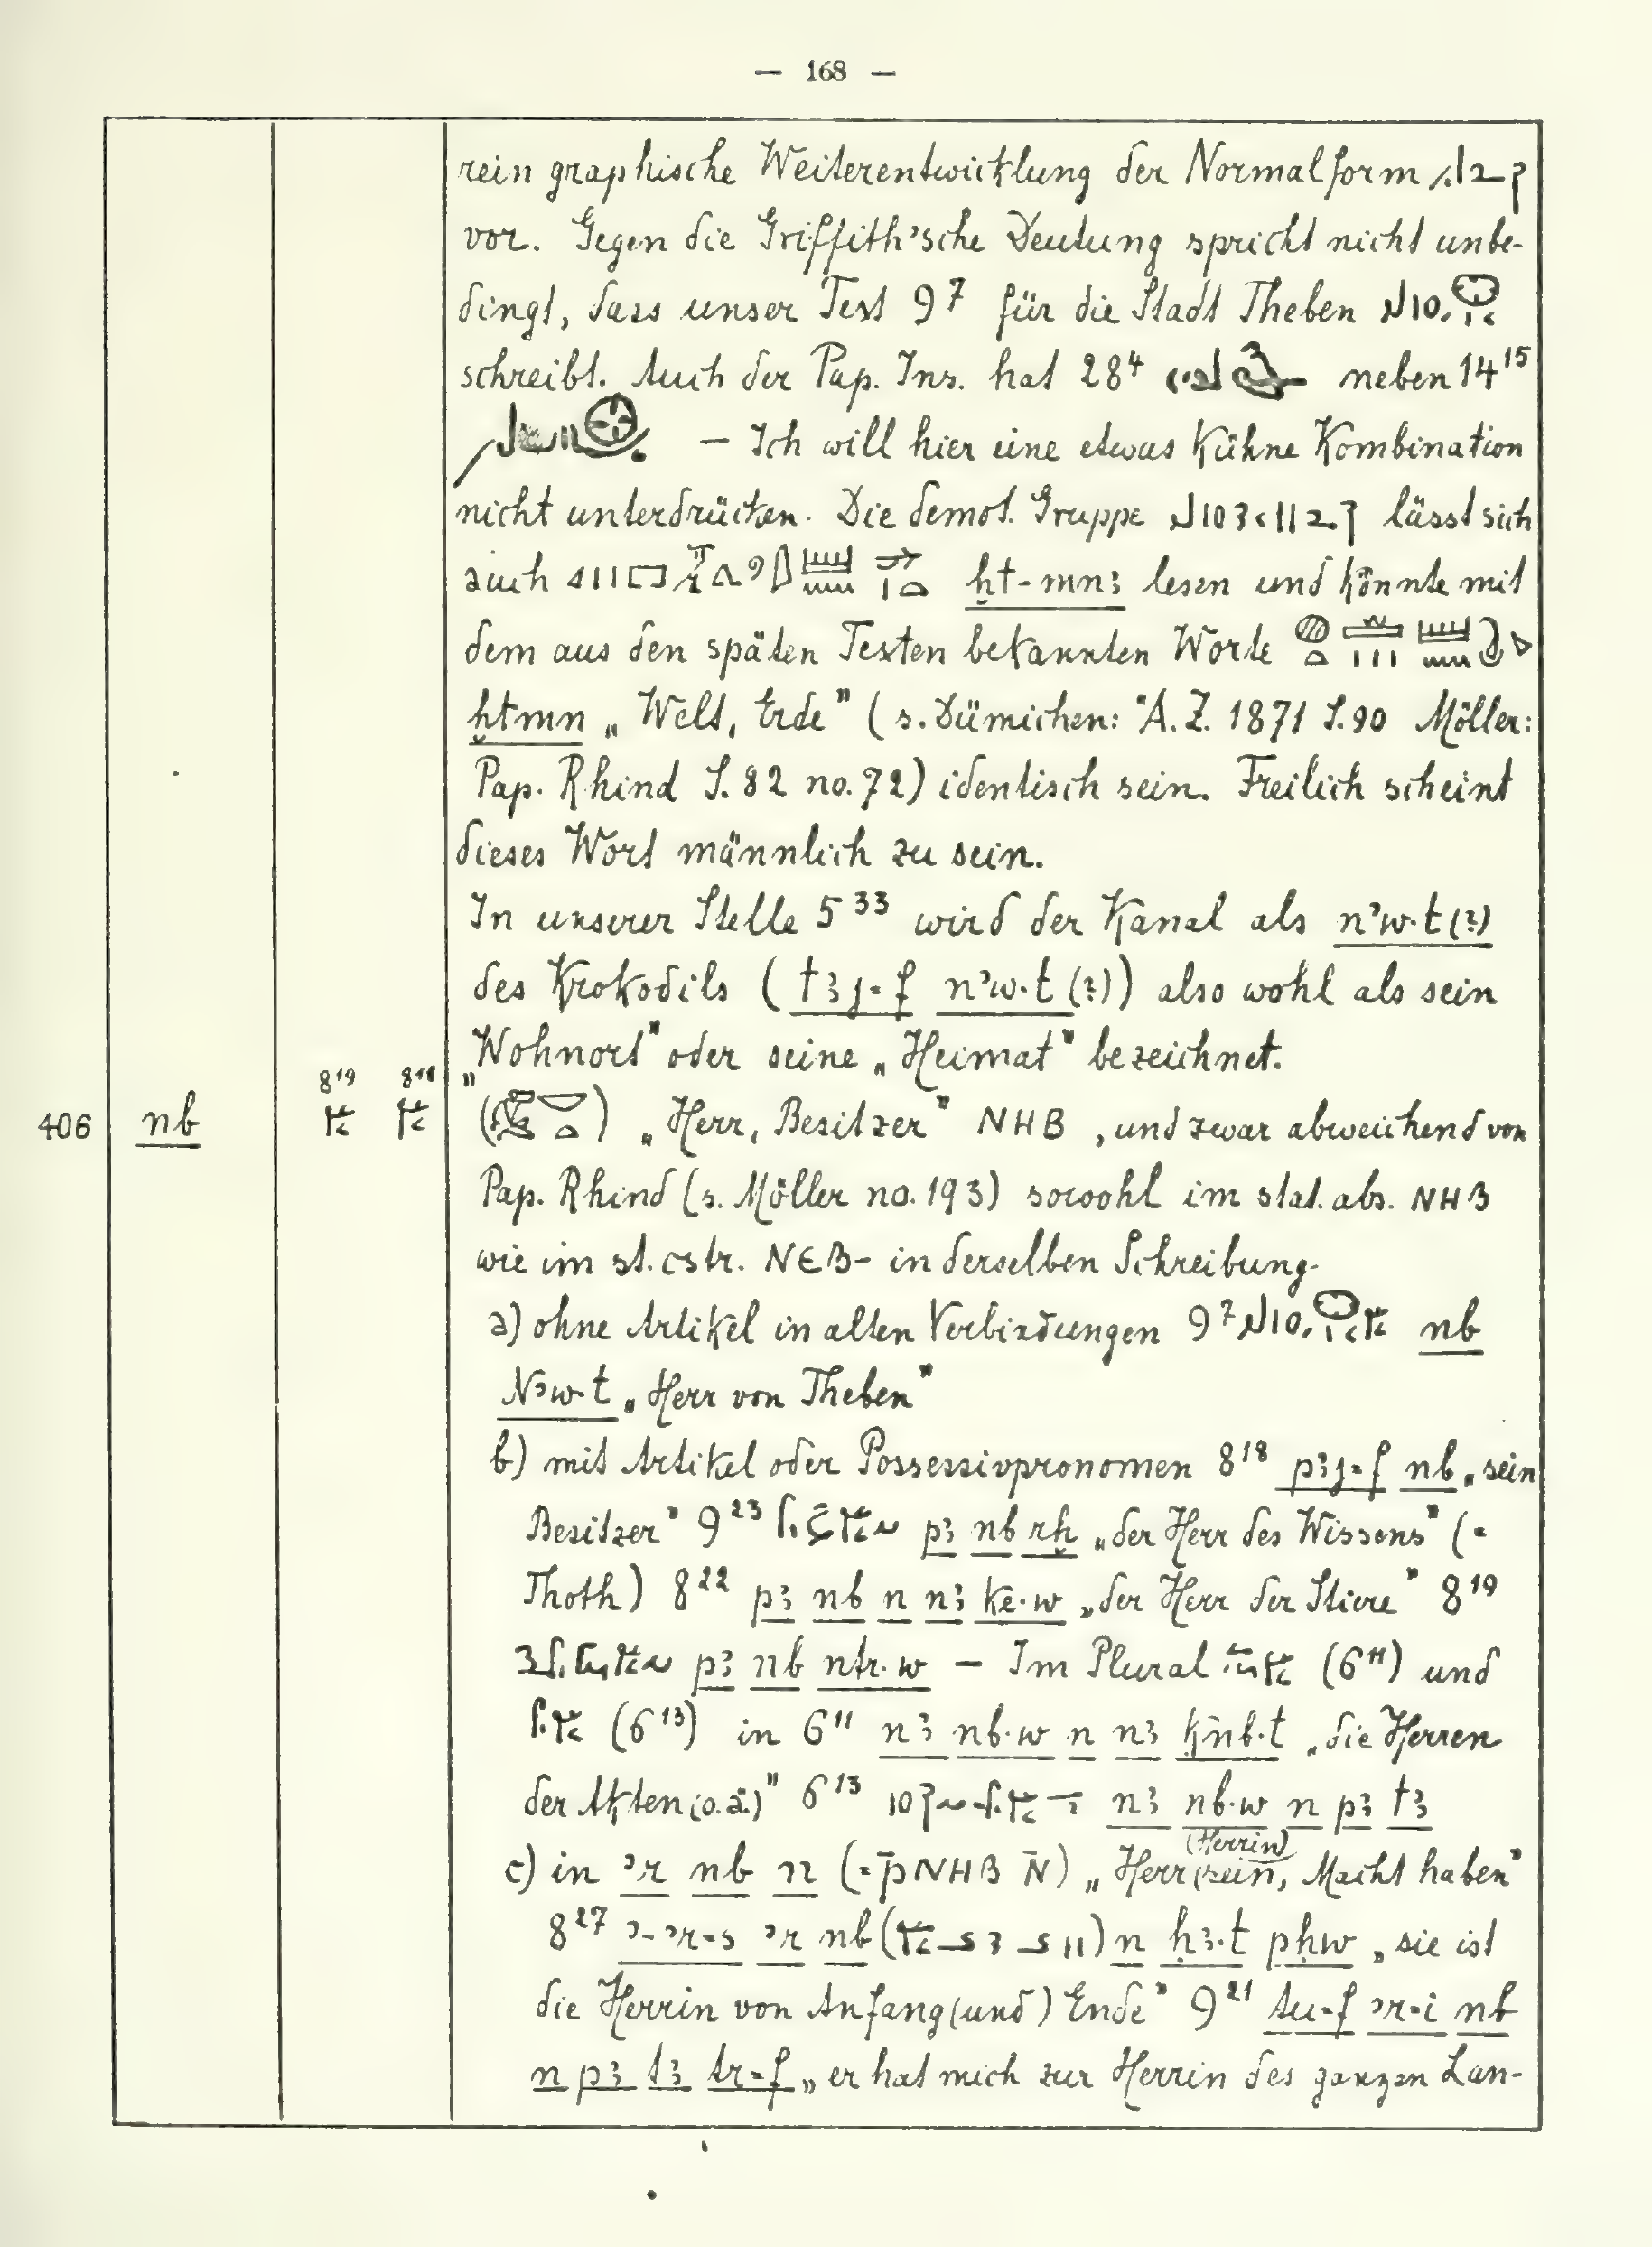 — 168 —
rein graphische Weiterentwicklung der Normalform
vor. Gegen die Griffith'sche Deutung spricht nicht unbe-
dingt, dass unser Text 9⁷ für die Stadt Theben
schreibt. Auch der Pap. Ins. hat 28⁴ neben 14¹⁵
— Ich will hier eine etwas kühne Kombination
nicht unterdrücken. Die demot. Gruppe lässt sich
auch ẖt-mnꜣ lesen und könnte mit
dem aus den späten Texten bekannten Worte
ẖtmn „Welt, Erde" (s. Dümichen: Ä.Z. 1871 S. 90 Möller:
Pap. Rhind S. 82 no. 72) identisch sein. Freilich scheint
dieses Wort männlich zu sein.
In unserer Stelle 5³³ wird der Kanal als n’w·t (?)
des Krokodils (tꜣj=f n’w·t (?)) also wohl als sein
„Wohnort" oder seine „Heimat" bezeichnet.
406 nb 8¹⁹ 8¹⁸ „Herr, Besitzer" ΝΗΒ, und zwar abweichend von
Pap. Rhind (s. Möller no. 193) sowohl im stat. abs. ΝΗΒ
wie im st. cstr. ΝЄΒ- in derselben Schreibung.
a) ohne Artikel in alten Verbindungen 9⁷ nb
N’w·t „Herr von Theben"
b) mit Artikel oder Possessivpronomen 8¹⁸ pꜣj=f nb „sein
Besitzer" 9²³ pꜣ nb rḫ „der Herr des Wissens" (=
Thoth) 8²² pꜣ nb n nꜣ ke·w „der Herr der Stiere" 8¹⁹
pꜣ nb ntr·w — Im Plural (6¹¹) und
(6¹³) in 6¹¹ nꜣ nb·w n nꜣ ḳnb·t „die Herren
der Akten (o.ä.)" 6¹³ nꜣ nb·w n pꜣ tꜣ
c) in ’r nb n (= ρ̄ΝΗΒ Ν̄) „Herr (Herrin) sein, Macht haben"
8²⁷ ’-’r=s ’r nb n ḥꜣ·t pḥw „sie ist
die Herrin von Anfang (und) Ende" 9²¹ tu=f ’r=i nb
n pꜣ tꜣ tr=f „er hat mich zur Herrin des ganzen Lan-